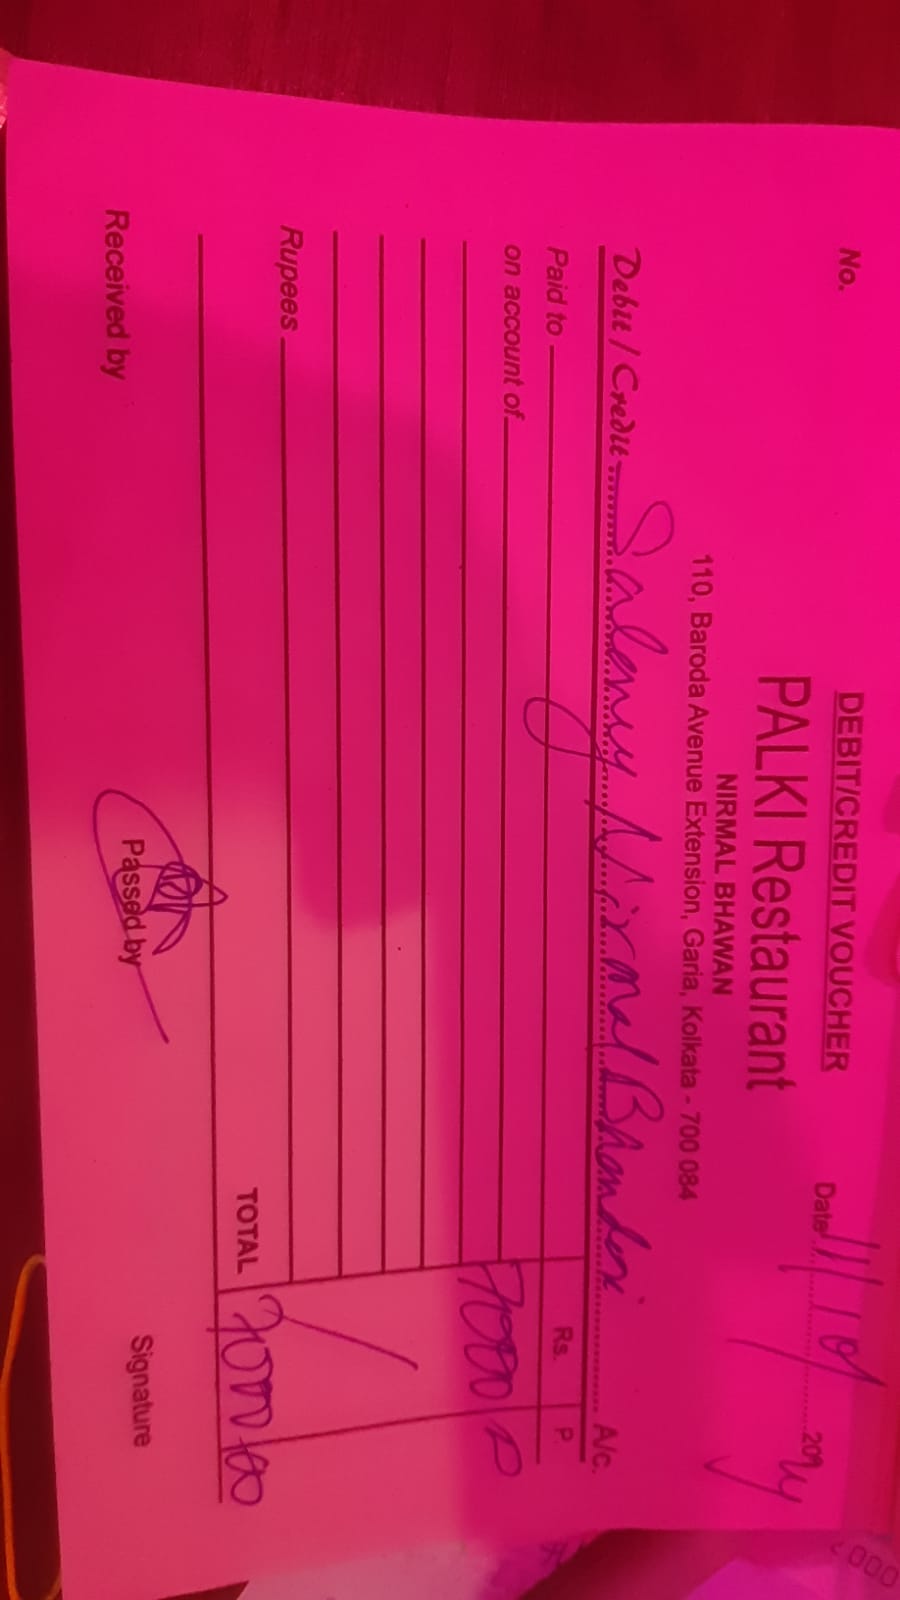 DEBIT/CREDIT VOUCHER
No.
Date 11/10/ 2024
PALKI Restaurant
NIRMAL BHAWAN
110, Baroda Avenue Extension, Garia, Kolkata - 700 084
Debit / Credit Salary Nirmal Bhandari A/c.
Paid to Rs. P.
on account of 7000
Rupees
TOTAL 7000 00
Received by Passed by Signature